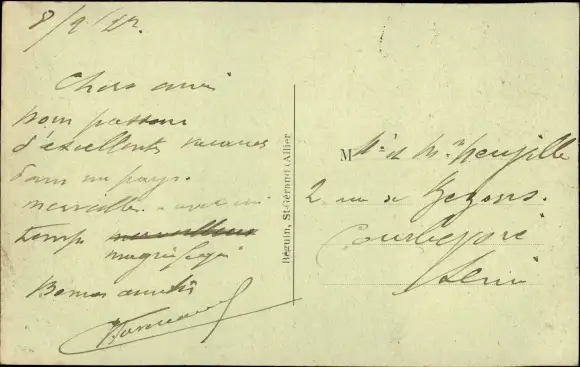 8/9/27.
Chers amis
Nous passons
d'excellentes vacances
dans un pays
merveilleux avec un
temps merveilleux
magnifique
Bonnes amitiés
Béguin, St-Gérand (Allier
M r et Me
2 rue de Bezons.
Courbevoie
Seine